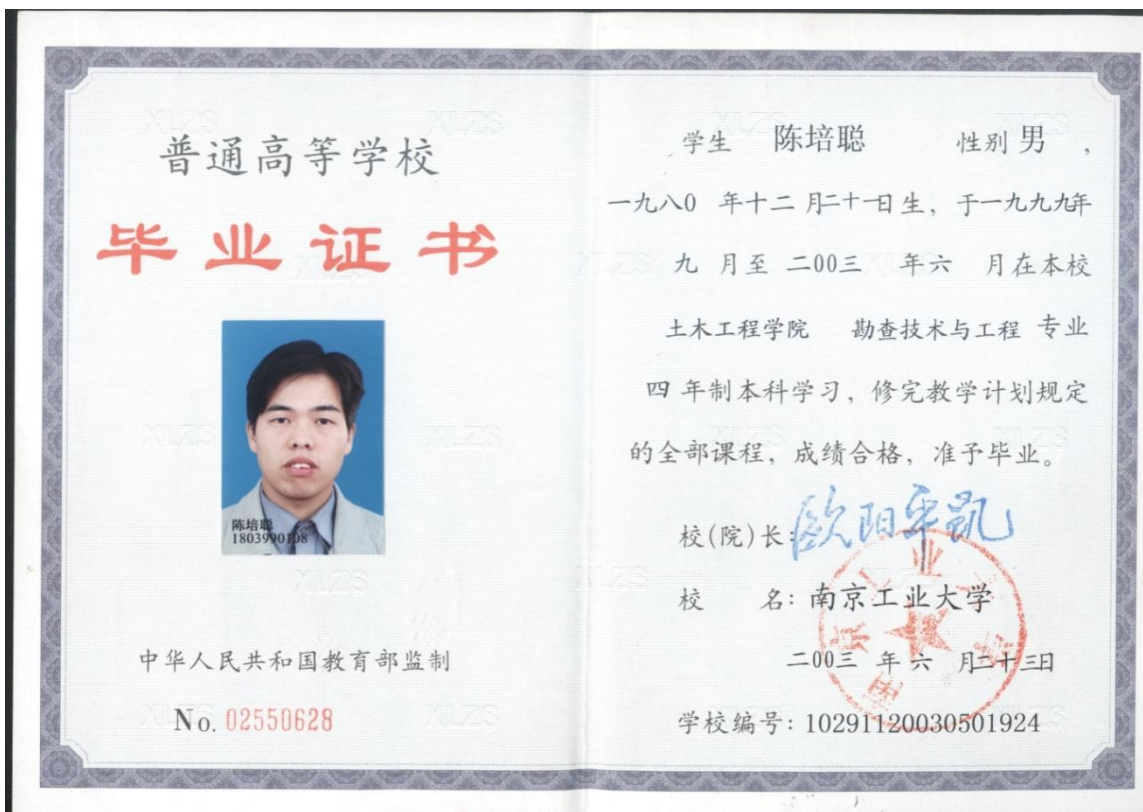 普通高等学校
毕业证书
陈培聪
1803990108
中华人民共和国教育部监制
No. 02550628
学生 陈培聪 性别 男 ,
一九八0 年十二 月二十一日生, 于一九九九年
九 月至 二00三 年六 月在本校
土木工程学院 勘查技术与工程 专业
四 年制本科学习, 修完教学计划规定
的全部课程, 成绩合格, 准予毕业。
校(院)长: 欧阳平凯
校 名: 南京工业大学
二00三 年 六 月二十三日
学校编号: 102911200305019​24
XLZS